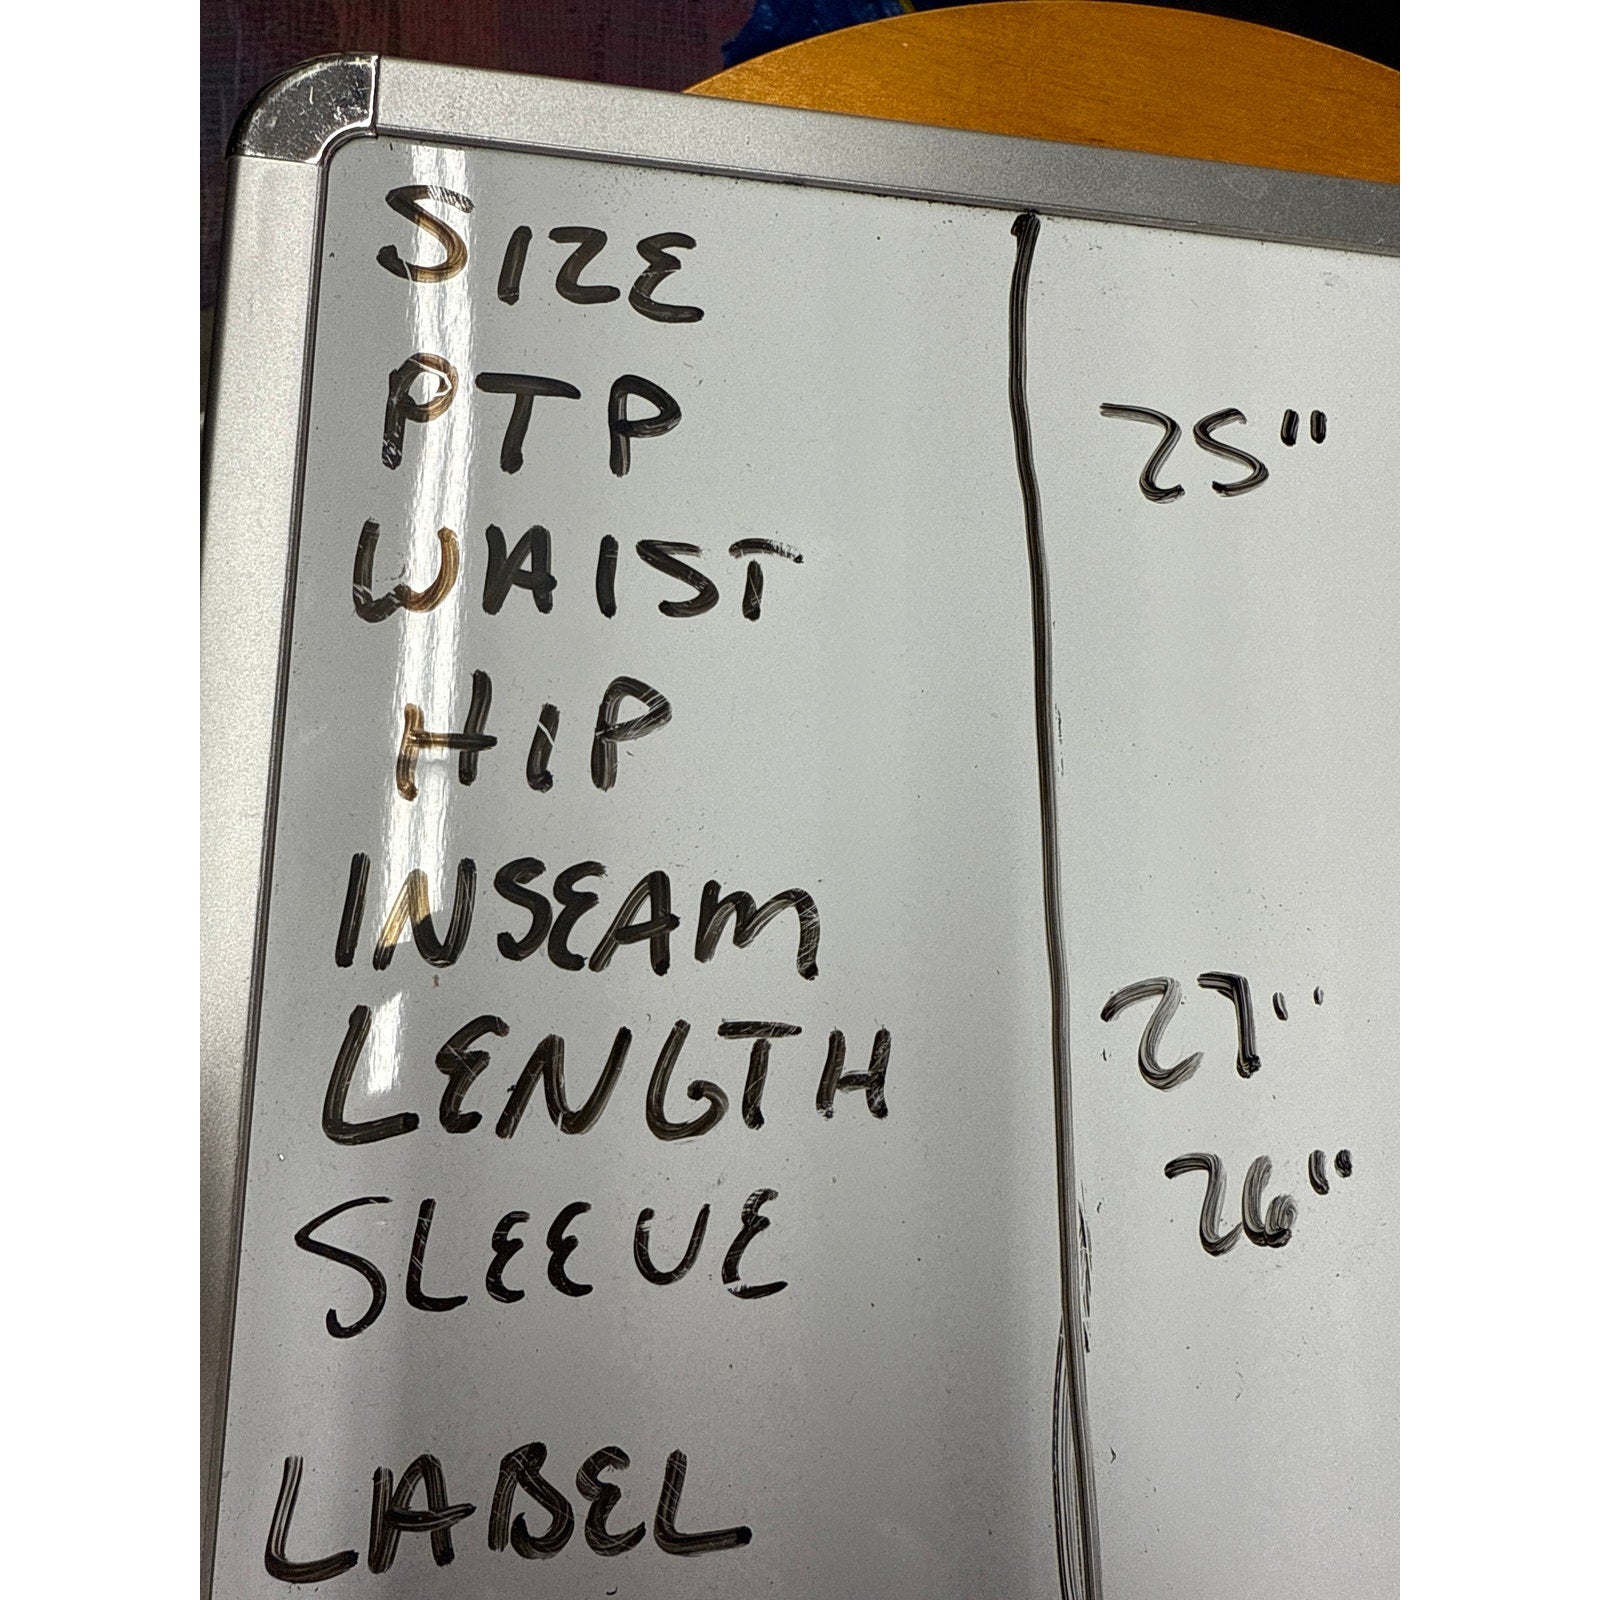 SIZE
PTP 25"
WAIST
HIP
INSEAM
LENGTH 27"
SLEEVE 26"
LABEL